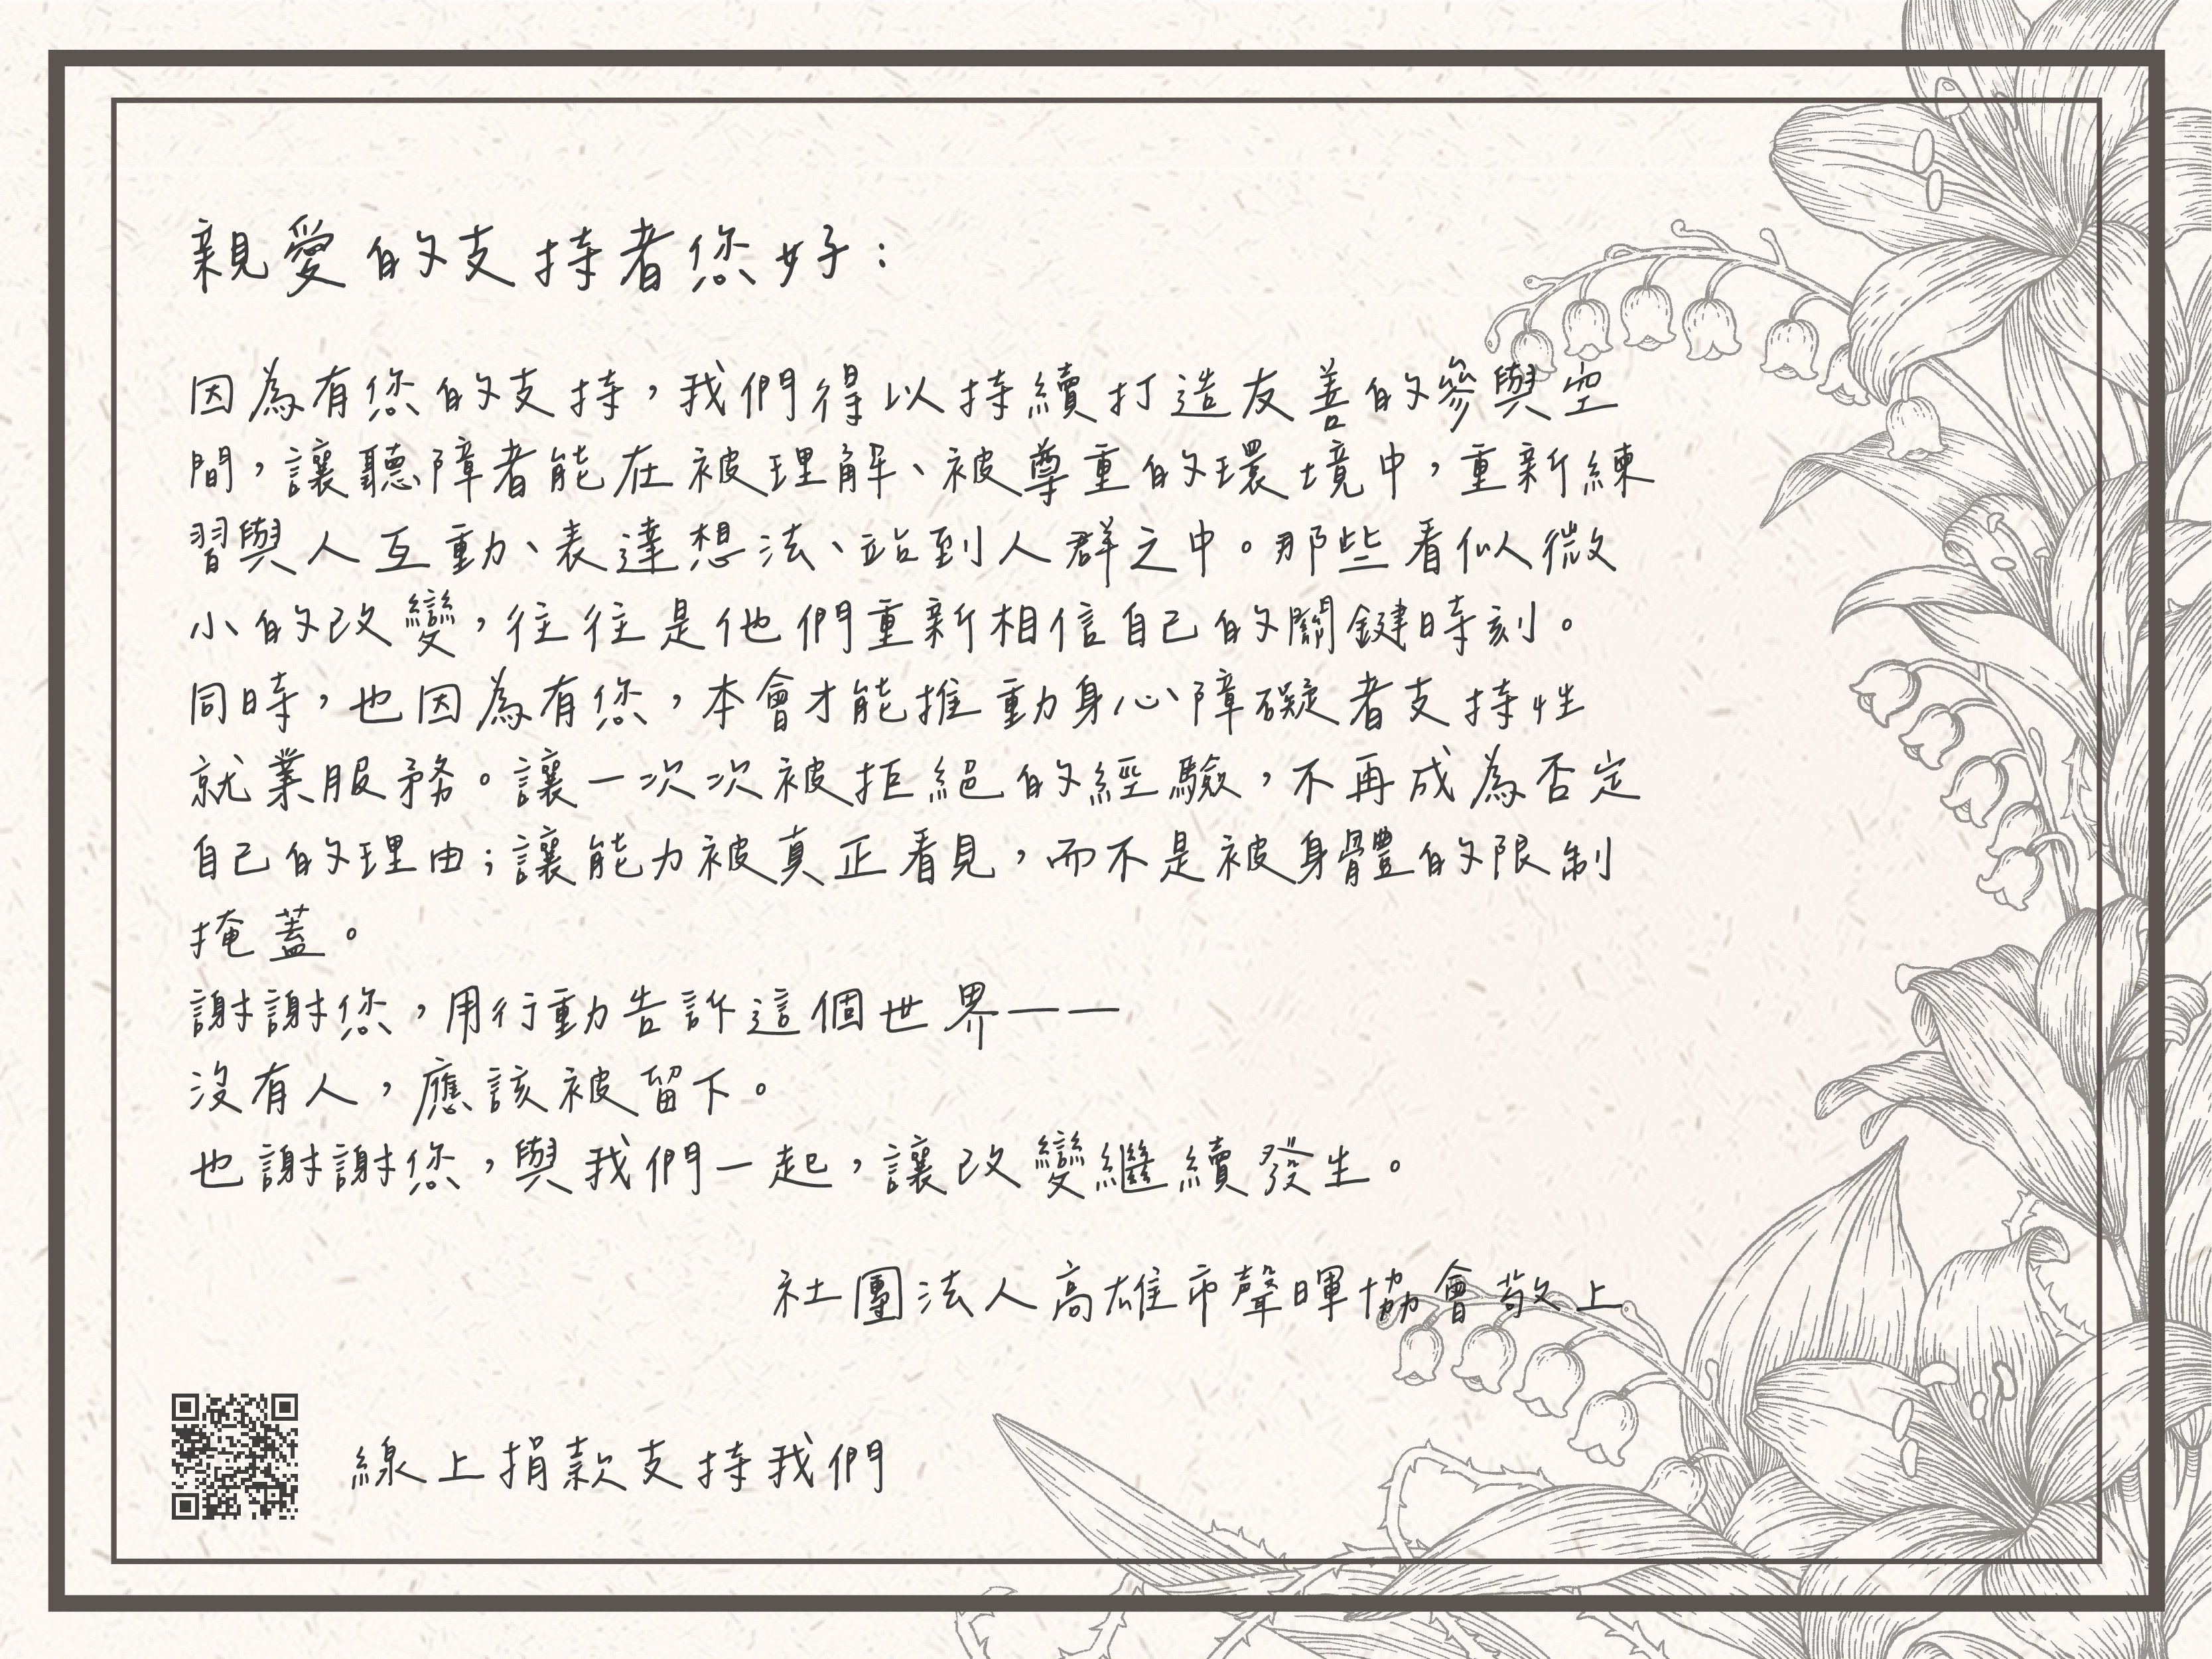 親愛的支持者您好：
因為有您的支持，我們得以持續打造友善的參與空
間，讓聽障者能在被理解、被尊重的環境中，重新練
習與人互動、表達想法、站到人群之中。那些看似微
小的改變，往往是他們重新相信自己的關鍵時刻。
同時，也因為有您，本會才能推動身心障礙者支持性
就業服務。讓一次次被拒絕的經驗，不再成為否定
自己的理由；讓能力被真正看見，而不是被身體的限制
掩蓋。
謝謝您，用行動告訴這個世界——
沒有人，應該被留下。
也謝謝您，與我們一起，讓改變繼續發生。
社團法人高雄市聲暉協會敬上
線上捐款支持我們